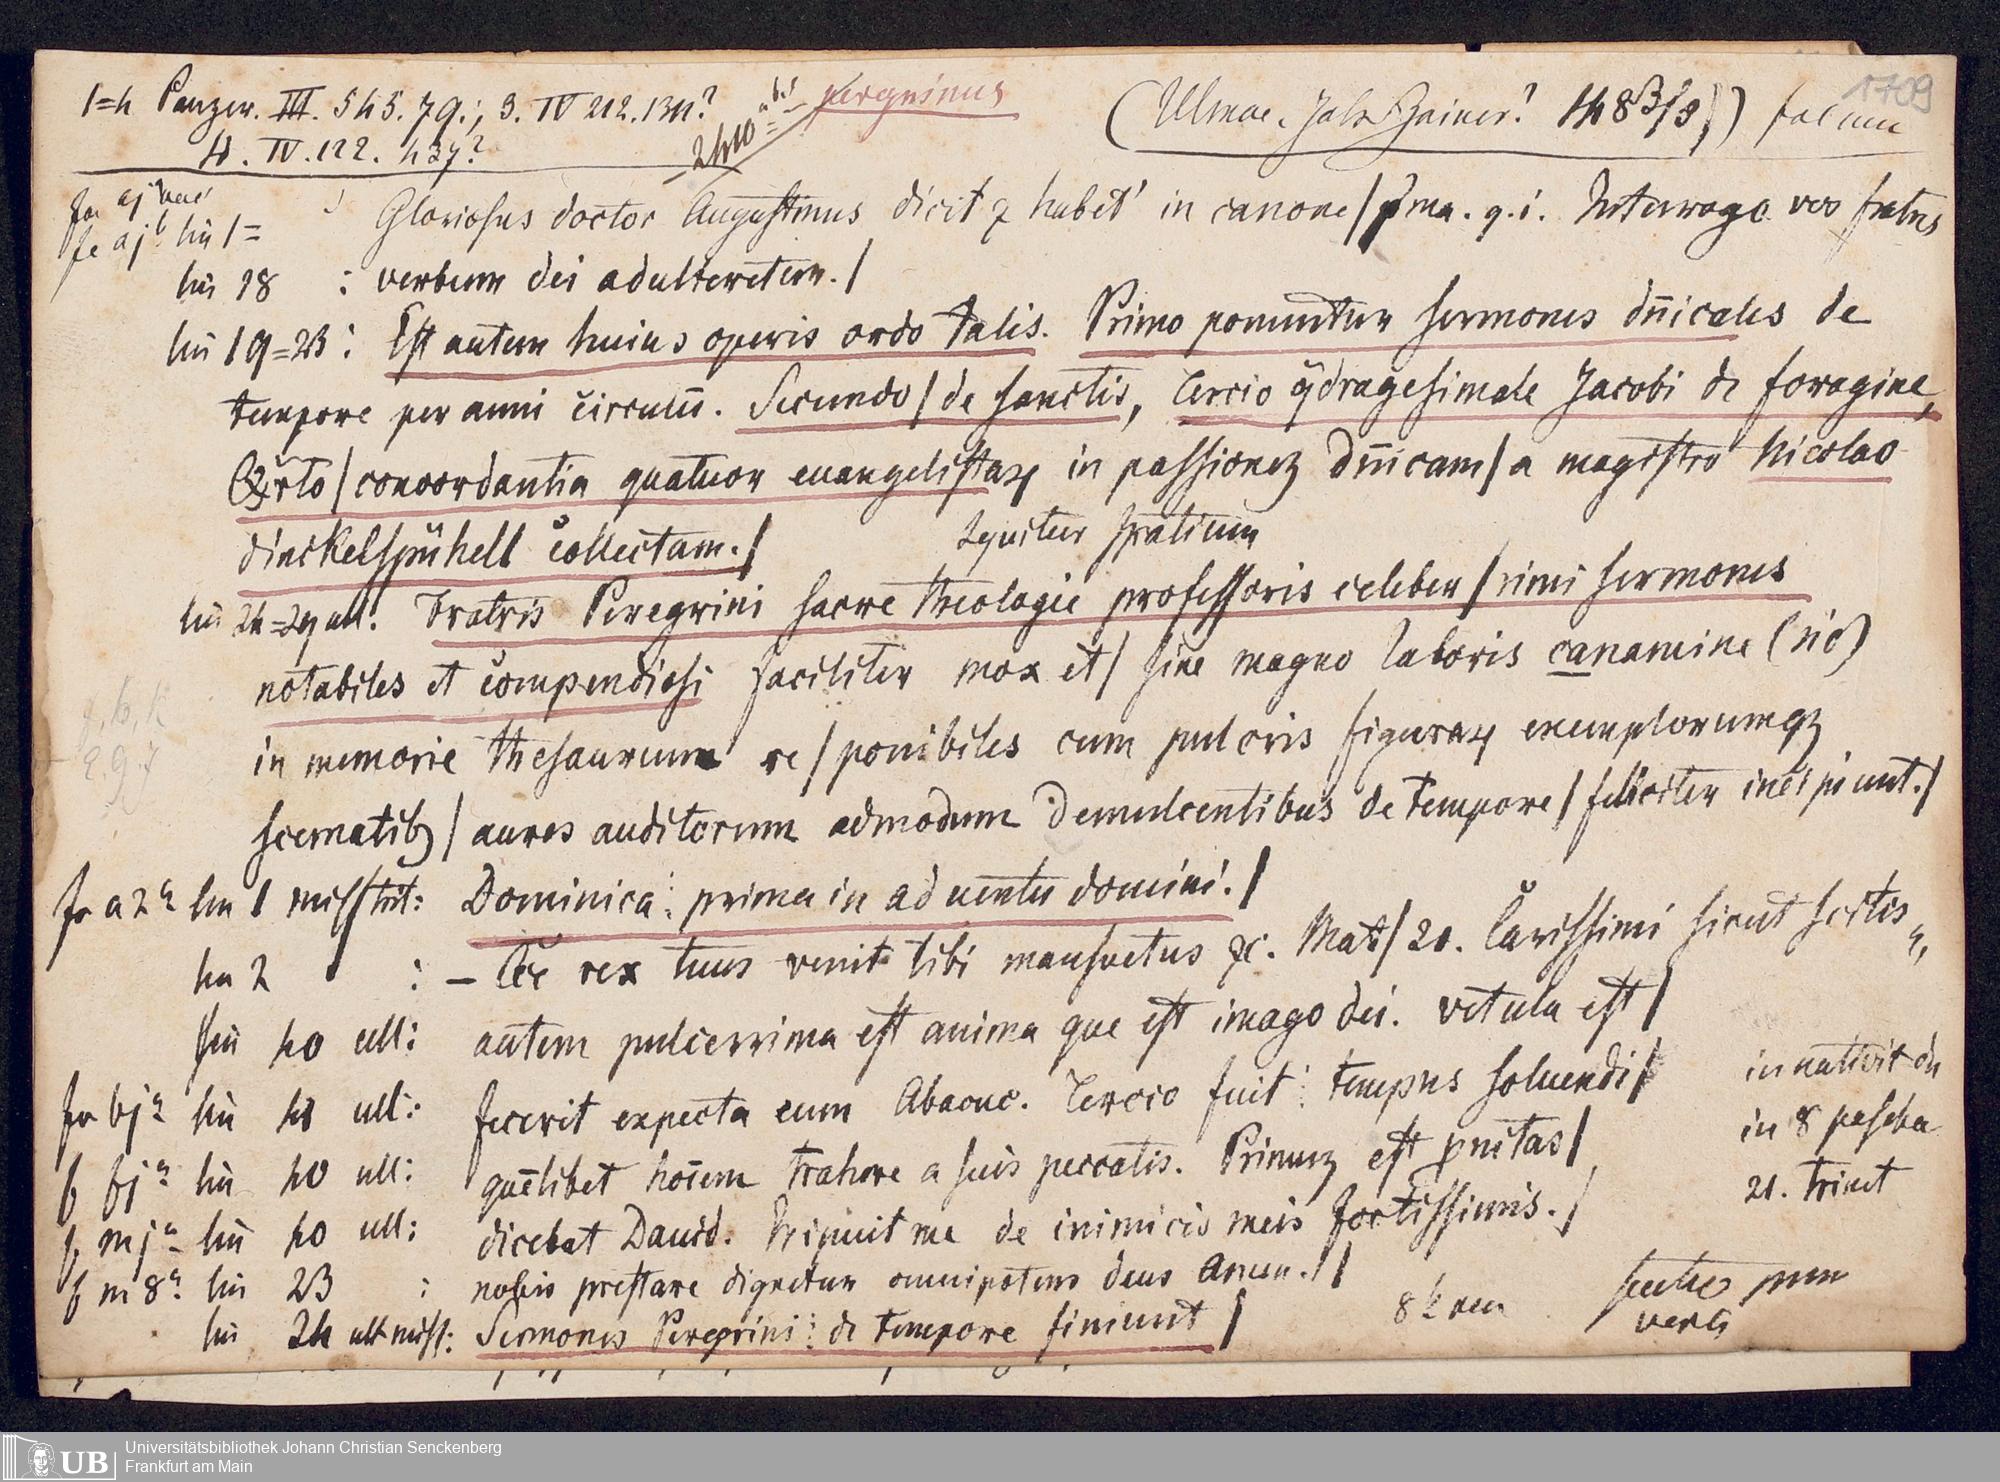 1=4 Panzer. III. 545. 79.; 3. IV 212. 1311? peregrinus (Ulmae, Joh Zainer? 1483/8)) fol min 1709
4. IV. 122. 437? 2410
fo aj vac
fo ajb lin 1= Gloriosus doctor Augustinus dicit ⁊ habet' in canone / pma. q. i. Interrogo vos fratres
lin 18 : verbum dei adulteretur. /
lin 19=23: Est autem huius operis ordo talis. Primo ponuntur sermones dnicales de
tempore per anni circulū. Secundo / de sanctis, Tercio qdragesimale Jacobi de foragine,
Qrto / concordantia quatuor euangelistaꝝ in passionez dn̄icam / a magistro Nicolao
dinckelspühell collectam. / Sequitur spatium
lin 24=29 ult: Fratris Peregrini sacre theologie professoris celeber / rimi sermones
notabiles et compendiosi faciliter mox et / sine magno laboris canamine (sic)
in memorie thesaurum re / ponibiles cum pulcris figuraꝝ exemplorumqꝫ
scematibꝫ / aures auditorum admodum demulcentibus de tempore / feliciter incipiunt. /
fo a2a lin 1 miss tit: Dominica: prima in aduentu domini. /
lin 2 : – Ecce rex tuus venit tibi mansuetus ⁊c. Mat / 21. Carissimi sicut scitis
lin 40 ult: autem pulcerrima est anima que est imago dei. vetula est /
fo bja lin 40 ult: fecerit expecta eum Abacuc. Tercio fuit: tempus soluendi / in nativit dn
f fja lin 40 ult: quēlibet hoīem trahere a suis peccatis. Primuz est pnitas / in 8 pascha
f mja lin 40 ult: dicebat Dauid. Eripuit me de inimicis meis fortissimis. / 21. trinit
f m8a lin 23 : nobis prestare dignetur omnipotens deus Amen. //
lin 24 ult miss: Sermones Peregrini: de tempore finiunt / verti
Universitätsbibliothek Johann Christian Senckenberg
UB Frankfurt am Main